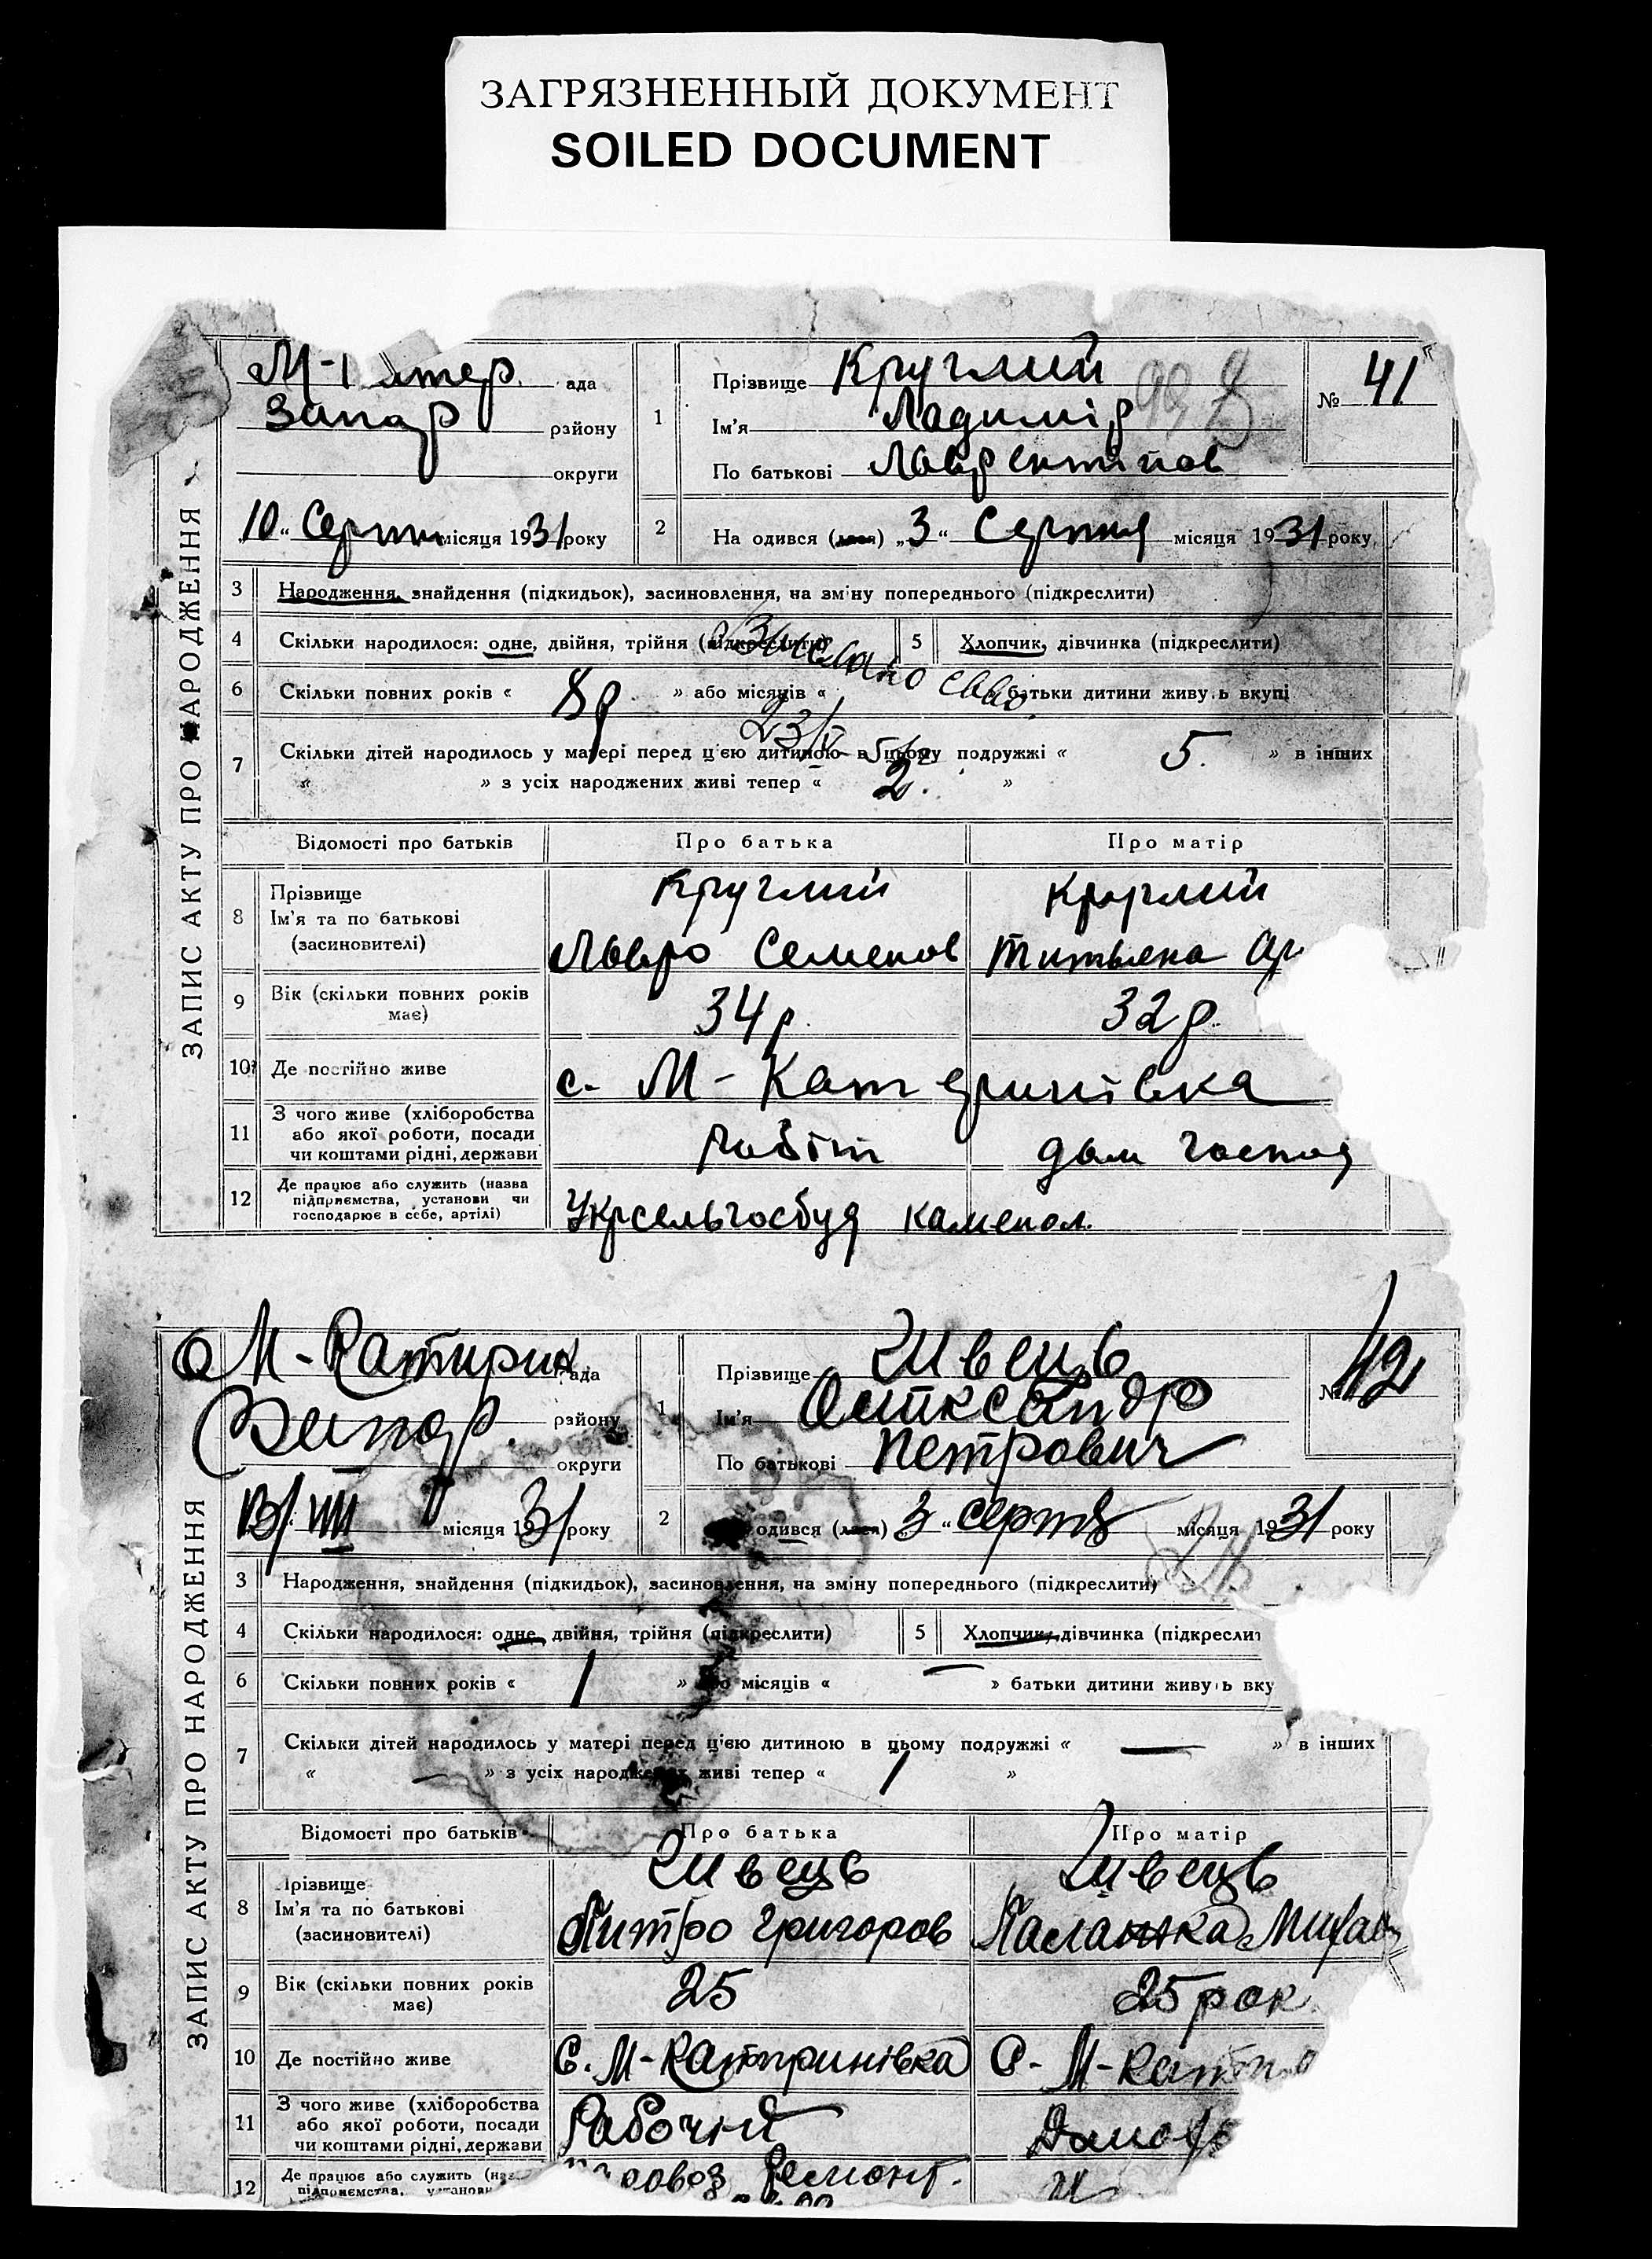 ЗАГРЯЗНЕННЫЙ ДОКУМЕНТ
SOILED DOCUMENT
ЗАПИС АКТУ ПРО НАРОДЖЕННЯ
ада
Запор району
округи
"10" Серпн місяця 1931 року
1
Прізвище Круглий
Ім'я Ладимір
По батькові Лаврентійов
№ 41
2
На одився (лася) „3“ Серпня місяця 1931 року
3 Народження, знайдення (підкидьок), засиновлення, на зміну попереднього (підкреслити)
4 Скільки народилося: одне, двійня, трійня (підкреслити) 5 Хлопчик, дівчинка (підкреслити)
6 Скільки повних років « 8р » або місяців « батьки дитини живуть вкупі
7 Скільки дітей народилось у матері перед ц'єю дитиною в цьому подружжі « 5. » в інших
« » з усіх народжених живі тепер « 2. »
Відомості про батьків Про батька Про матір
8 Прізвище
Ім'я та по батькові
(засиновителі)
Круглий
Лавро Семенов
Круглий
Титьяна
9 Вік (скільки повних років має) 34 р. 32 р.
10 Де постійно живе с. М-Катеринівка
11 З чого живе (хліборобства або якої роботи, посади чи коштами рідні, держави робіт дом господ
12 Де працює або служить (назва підприємства, установи чи господарює в себе, артілі) Укрсельгосбуд каменол.
ЗАПИС АКТУ ПРО НАРОДЖЕННЯ
М-Катирин ада
Запор. району
округи
13/VIII місяця 1931 року
1
Прізвище Швець
Ім'я
По батькові Петрович
№ 42
2
одився (лася) 3 “ серпня місяця 1931 року
3 Народження, знайдення (підкидьок), засиновлення, на зміну попереднього (підкреслити)
4 Скільки народилося: одне, двійня, трійня (підкреслити) 5 Хлопчик, дівчинка (підкресли
6 Скільки повних років « 1 » або місяців « — » батьки дитини живуть вку
7 Скільки дітей народилось у матері перед ц'єю дитиною в цьому подружжі « — » в інших
« — » з усіх народжених живі тепер « 1 »
Відомості про батьків Про батька Про матір
8 Прізвище
Ім'я та по батькові
(засиновителі)
Швець
Питро Григоров
Швець
Палажка Михай
9 Вік (скільки повних років має) 25 25 рок
10 Де постійно живе С. М-Катиринівка С. М-Кат
11 З чого живе (хліборобства або якої роботи, посади чи коштами рідні, держави Рабочий
12 Де працює або служить (наз
підприємства, установи Ремонт.